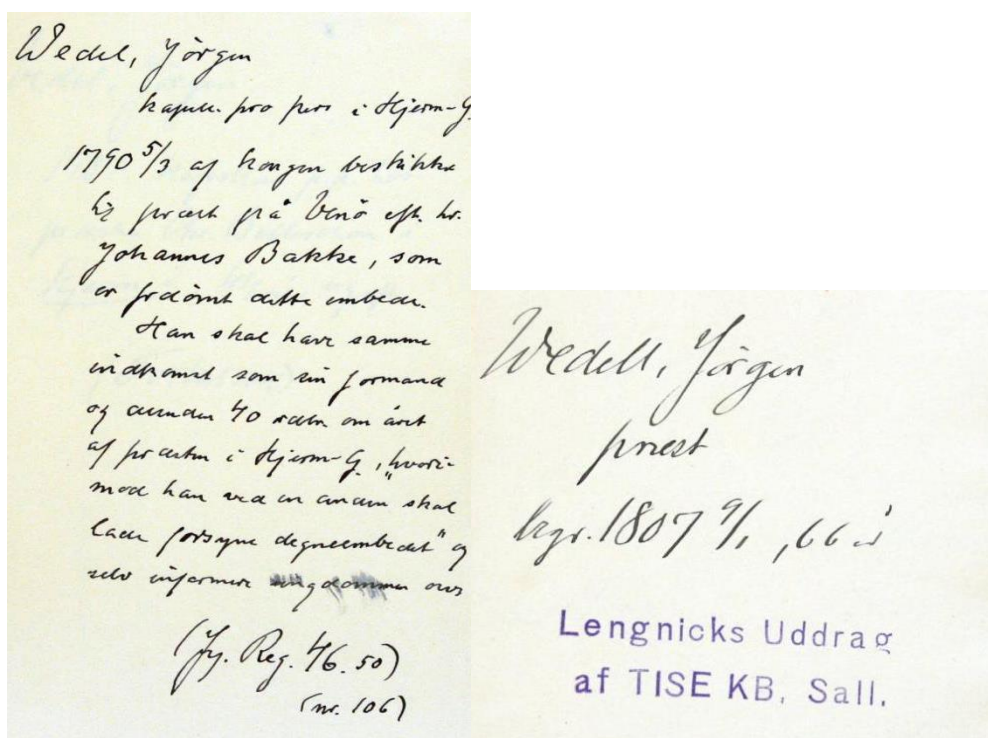 Wedel, Jörgen
kapell. pro pers i Hjerm-G.
1790 5/3 af kongen beskikke
lig præst på Venö eft. hr.
Johannes Bakke, som
er frdömt dette embede.
Han skal have samme
indkomst som sin formand
og desuden 40 rdlr om året
af præsten i Hjerm-G., "hvori-
mod han ved en anden skal
lade forsyne degneembedet" og
selv informere ungdommen ovs
(Jy. Reg. 46.50)
(nr. 106)
Wedell, Jörgen
præst
begr. 1807 9/1, 66 år
Lengnicks Uddrag
af TISE KB, Sall.